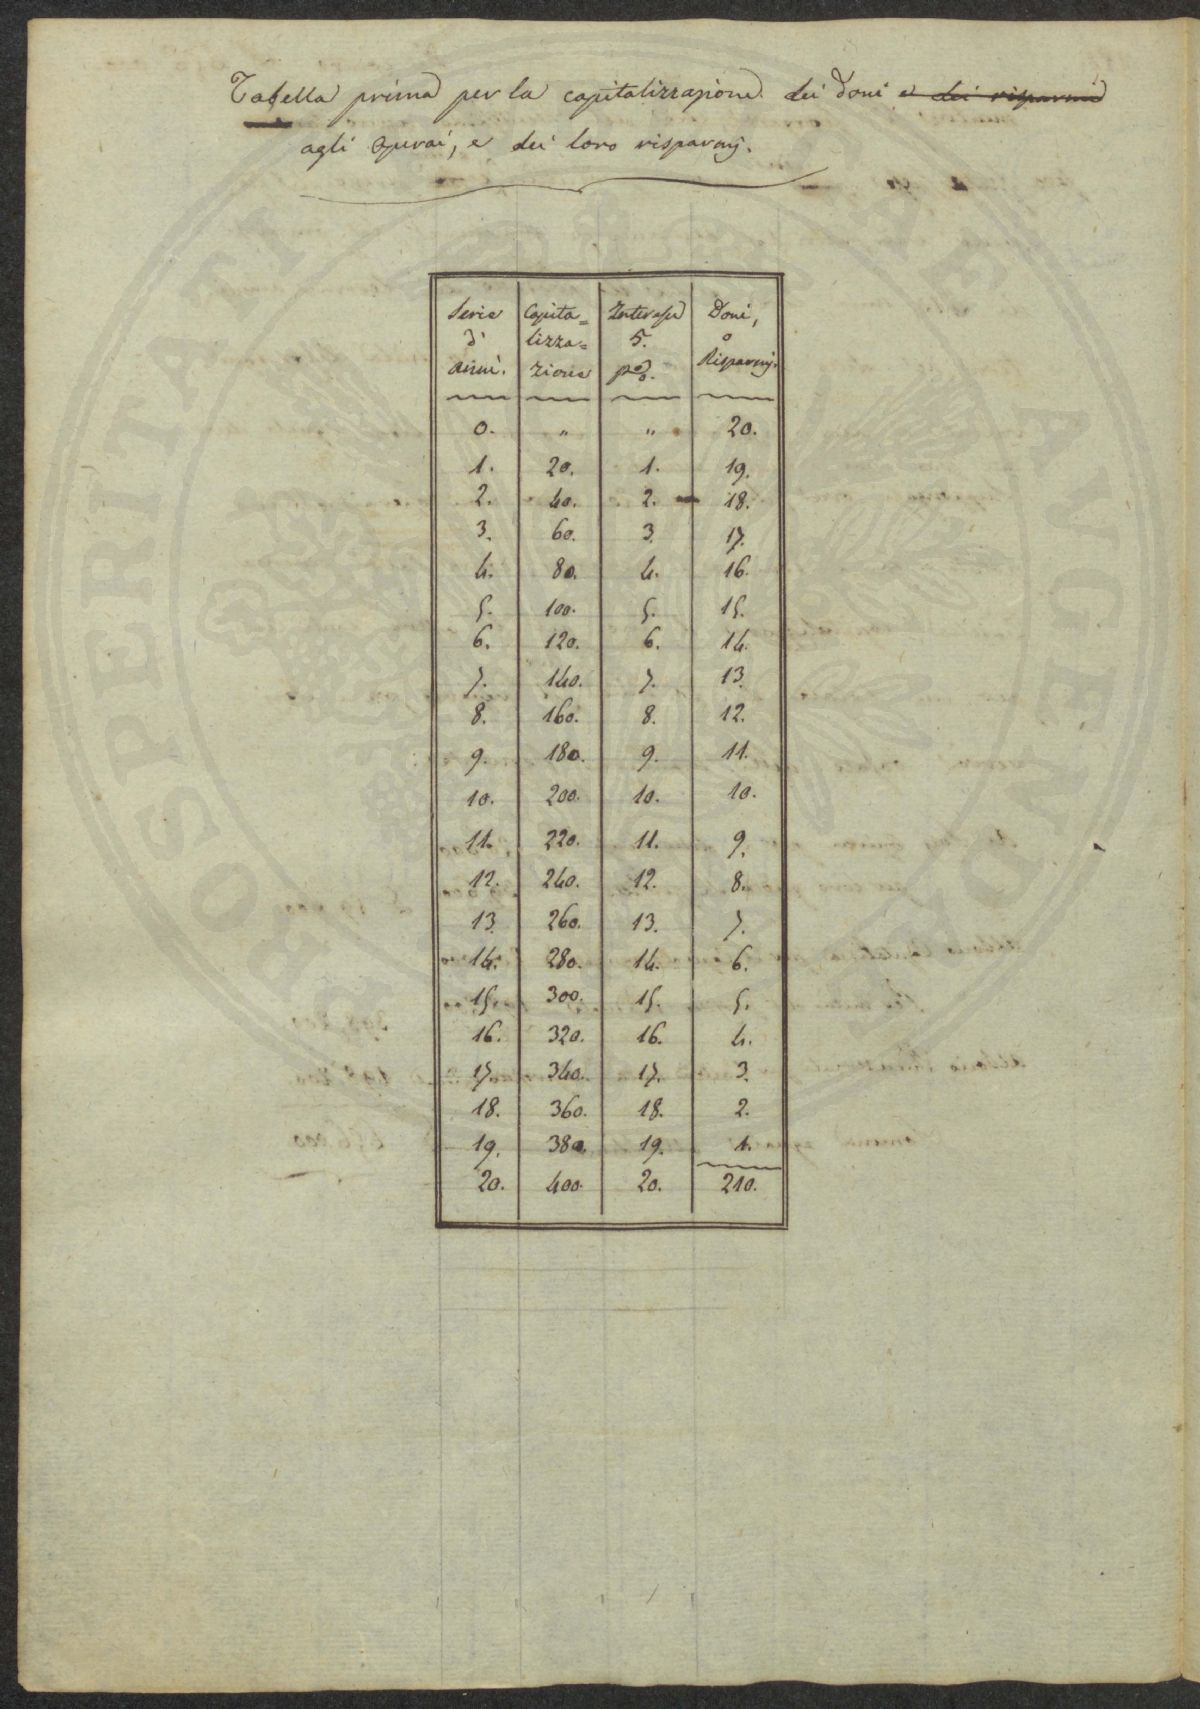 Tabella prima per la capitalizzazione dei Doni e dei risparmi
agli Operai, e dei loro risparmj.
Serie d' anni. | Capita=lizza=zione | Interesse 5. p%. | Doni, o Risparmj.
0. | " | " | 20.
1. | 20. | 1. | 19.
2. | 40. | 2. | 18.
3. | 60. | 3. | 17.
4. | 80. | 4. | 16.
5. | 100. | 5. | 15.
6. | 120. | 6. | 14.
7. | 140. | 7. | 13.
8. | 160. | 8. | 12.
9. | 180. | 9. | 11.
10. | 200. | 10. | 10.
11. | 220. | 11. | 9.
12. | 240. | 12. | 8.
13. | 260. | 13. | 7.
14. | 280. | 14. | 6.
15. | 300. | 15. | 5.
16. | 320. | 16. | 4.
17. | 340. | 17. | 3.
18. | 360. | 18. | 2.
19. | 380. | 19. | 1.
20. | 400. | 20. | 210.